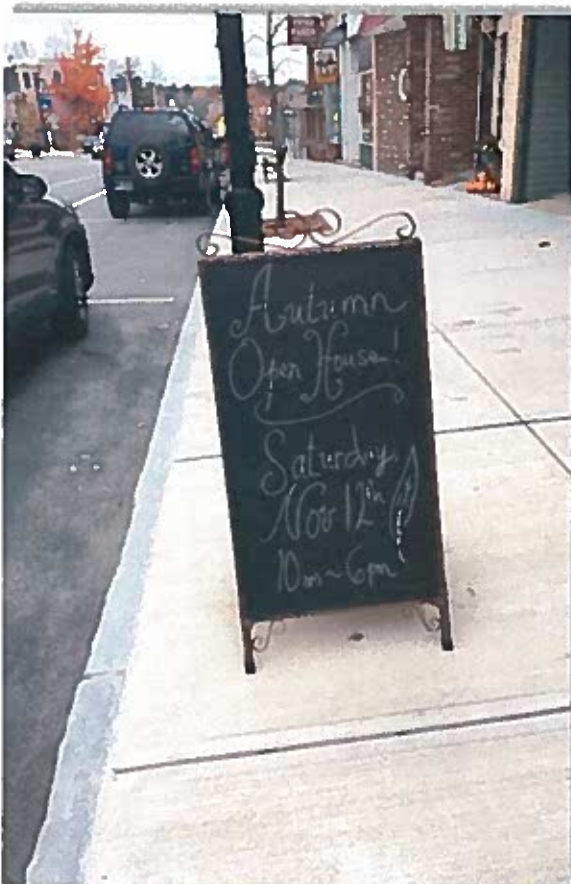 Autumn
Open House!
Saturday
Nov 12th
10am~6pm